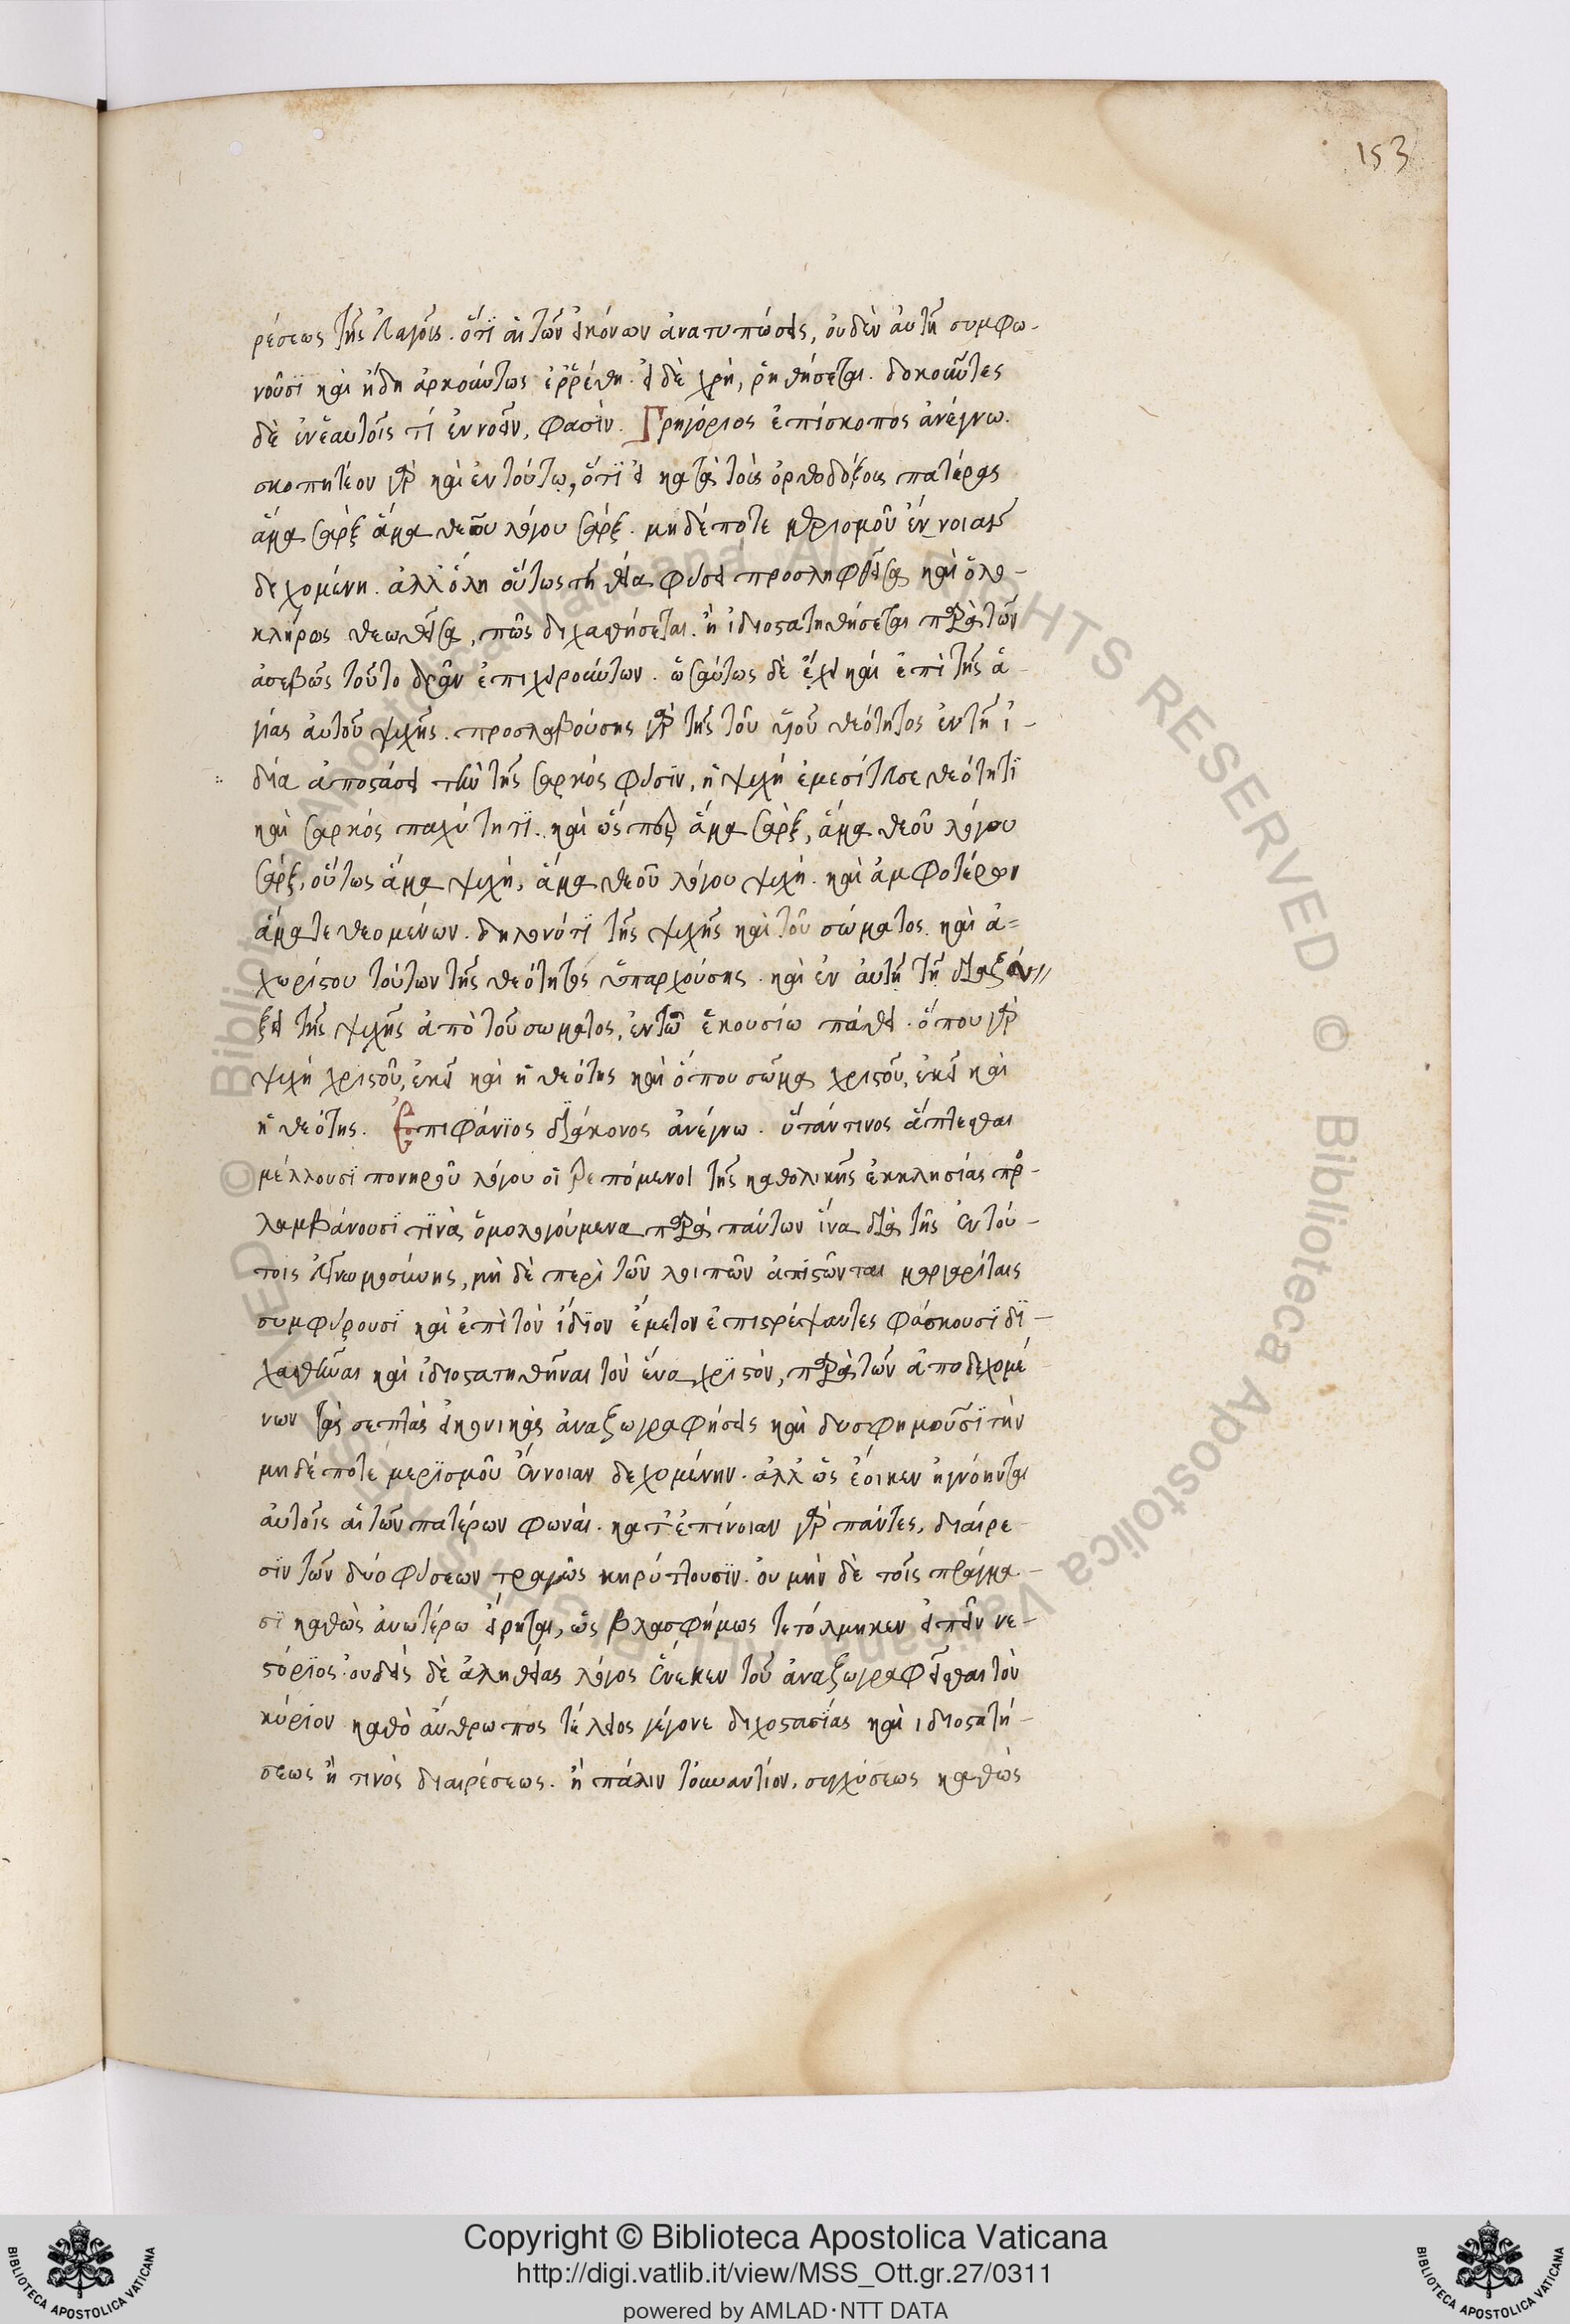 153
ρέσεως τῆς ἐναγοῦς. ὅτι αἱ τῶν εἰκόνων ἀνατυπώσεις, οὐδὲν αὐτῇ συμφω-
νοῦσι καὶ ἤδη ἀρκούντως ἐρρέθη. εἰ δὲ χρὴ, ῥηθήσεται. δοκοῦντες
δὲ ἐν ἑαυτοῖς τί ἐννοεῖν, φασίν. Γρηγόριος ἐπίσκοπος ἀνέγνω.
σκοπητέον γὰρ καὶ ἐν τούτῳ, ὅτι εἰ κατὰ τοὺς ὀρθοδόξους πατέρας
ἅμα σὰρξ ἅμα θεοῦ λόγου σὰρξ. μηδέποτε μερισμοῦ ἔννοιαν
δεχομένη. ἀλλ' ὅλη οὕτως τῇ θεία φύσει προσληφθεῖσα καὶ ὁλο-
κλήρως θεωθεῖσα, πῶς διχασθήσεται. ἢ ἰδιοστατηθήσεται παρὰ τῶν
ἀσεβῶς τοῦτο δρᾶν ἐπιχειρούντων. ὡσαύτως δὲ ἔχει καὶ ἐπὶ τῆς ἁ-
γίας αὐτοῦ ψυχῆς. προσλαβούσης γὰρ τῆς τοῦ υἱοῦ θεότητος ἐν τῇ ἰ-
δία ὑποστάσει τὴν τῆς σαρκός φύσιν, ἡ ψυχὴ ἐμεσίτευσε θεότητι
καὶ σαρκός παχύτητι. καὶ ὥσπερ ἅμα σὰρξ, ἅμα θεοῦ λόγου
σὰρξ, οὕτως ἅμα ψυχὴ, ἅμα θεοῦ λόγου ψυχὴ. καὶ ἀμφοτέρων
ἅμα τεθεομένων. δηλονότι τῆς ψυχῆς καὶ τοῦ σώματος. καὶ ἀ=
χωρίστου τούτων τῆς θεότητος ὑπαρχούσης. καὶ ἐν αὐτῇ τῇ διαζεύ//
ξει τῆς ψυχῆς ἀπὸ τοῦ σωματος, ἐν τῶ ἑκουσίω πάθει. ὅπου γὰρ
ψυχὴ χριστοῦ, ἐκεῖ καὶ ἡ θεότης καὶ ὅπου σῶμα χριστοῦ, ἐκεῖ καὶ
ἡ θεότης. Ἐπιφάνιος διάκονος ἀνέγνω. ὅταν τινος ἅπτεσθαι
μέλλουσι πονηροῦ λόγου οἱ τρεπόμενοι τῆς καθολικῆς ἐκκλησίας προ-
λαμβάνουσι τινὰ ὁμολογούμενα παρὰ πάντων ἵνα διὰ τῆς ἐν τού-
τοις εὐγνωμοσύνης, μὴ δὲ περὶ τῶν λοιπῶν ἀπιστῶνται μαργαρίταις
συμφύρουσι καὶ ἐπὶ τὸν ἴδιον ἔμετον ἐπιστρέψαντες φάσκουσι δι-
χασθῆναι καὶ ἰδιοστατηθῆναι τὸν ἕνα χριστὸν, παρὰ τῶν ἀποδεχομέ
νων τὰς σεπτὰς εἰκονικὰς ἀναζωγραφήσεις καὶ δυσφημοῦσι τὴν
μηδέποτε μερισμοῦ ἔννοιαν δεχομένην. ἀλλ' ὡς ἔοικεν ἠγνόηνται
αὐτοῖς αἱ τῶν πατέρων φωναί. κατ' ἐπίνοιαν γὰρ πάντες, διαίρε
σιν τῶν δύο φύσεων τρανῶς κηρύττουσιν. οὐ μὴν δὲ τοῖς πράγμα-
σι καθὼς ἀνωτέρω εἴρηται, ὡς βλασφήμως τετόλμηκεν εἰπεῖν νε-
στόριος. οὐδεὶς δὲ ἀληθείας λόγος ἕνεκεν τοῦ ἀναζωγραφεῖσθαι τὸν
κύριον καθὸ ἄνθρωπος τέλειος γέγονε διχοστασίας καὶ ἰδιοστατή-
σεως ἤ τινὸς διαιρέσεως. ἢ πάλιν τοὐναντίον, συγχύσεως καθὼς
Copyright © Biblioteca Apostolica Vaticana
http://digi.vatlib.it/view/MSS_Ott.gr.27/0311
powered by AMLAD·NTT DATA